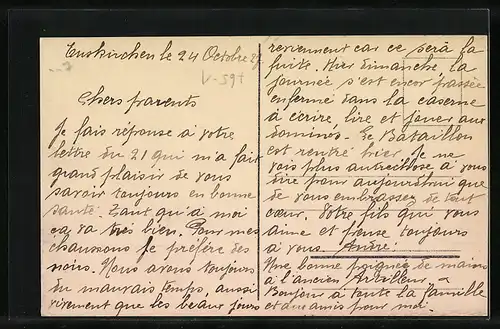 Euskirchen le 24 Octobre 27
V-59t
Chers parents
Je fais réponse à votre
lettre du 21 qui m'a fait
grand plaisir de vous
savoir toujours en bonne
santé. Tant qu'à moi
ça va très bien. Pour mes
chaussons je préfère des
noirs. Nous avons toujours
du mauvais temps, aussi
vivement que les beaux jours
reviennent car ce sera la
fuite. Hier dimanche la
journée s'est encor passée
enfermé dans la caserne
à écrire, lire et jouer aux
dominos. Le Bataillon
est rentré hier. Je ne
vois plus autre chose à vous
dire pour aujourd'hui que
de vous embrasser de tout
cœur. Votre fils qui vous
aime et pense toujours
à vous. André:
Une bonne poignée de mains
à l'ancien Artilleur -
Bonjour à toute la famille
et aux amis pour moi.